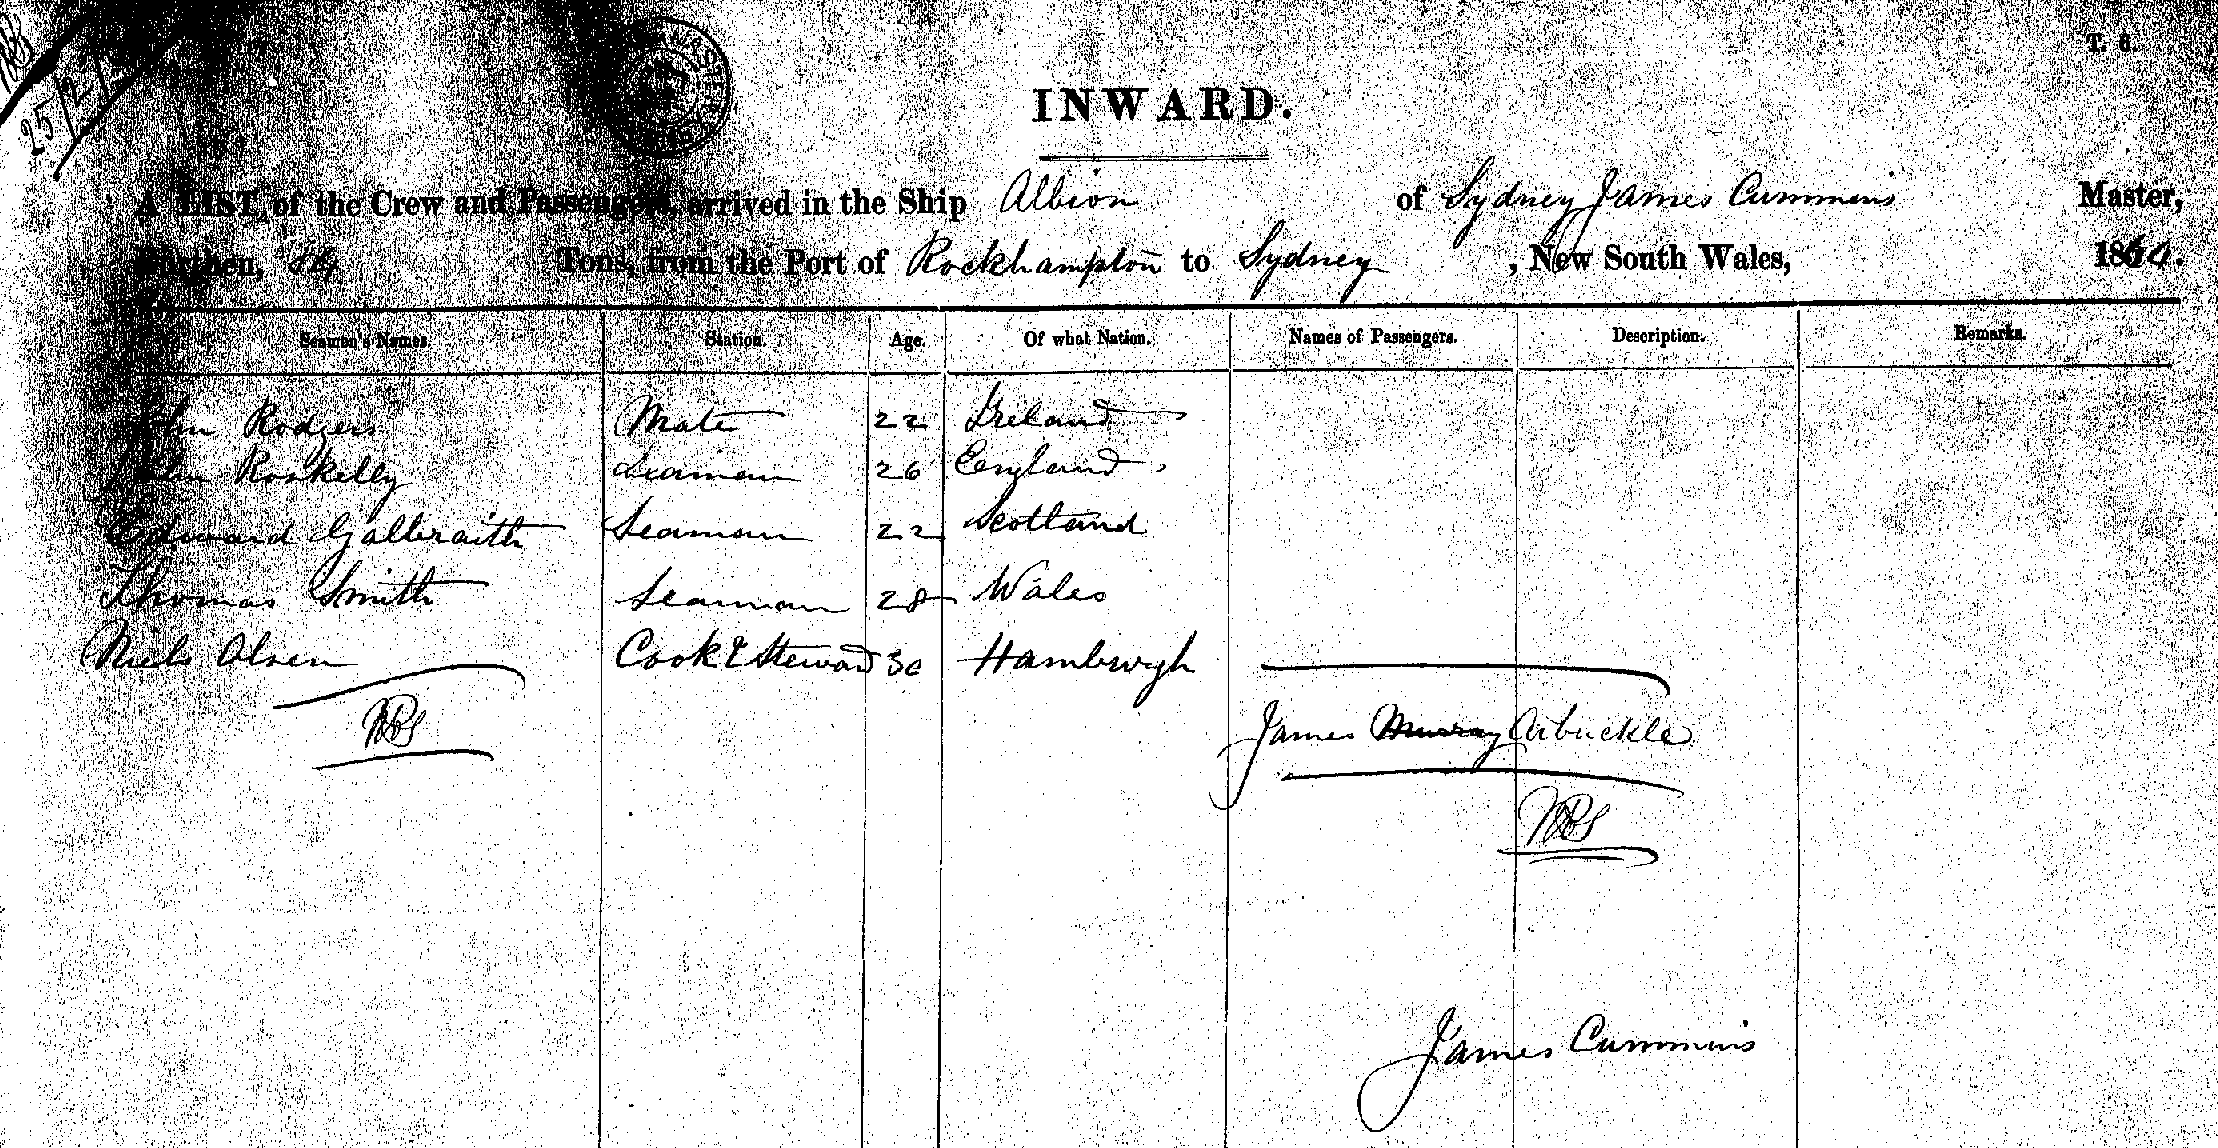 25/2/
T. 6.
INWARD.
A LIST, of the Crew and Passengers, arrived in the Ship Albion of Sydney James Cummins Master,
Burthen, 84 Tons, from the Port of Rockhampton to Sydney, New South Wales, 1864.
Seamen's Names. Station. Age. Of what Nation. Names of Passengers. Description. Remarks.
John Rodgers Mate 22 Ireland
John Roskelly Seaman 26 England
Edward Galbraith Seaman 22 Scotland
Thomas Smith Seaman 28 Wales
Niels Olsen Cook & Steward 30 Hamburgh
James Murray Arbuckle
James Cummins